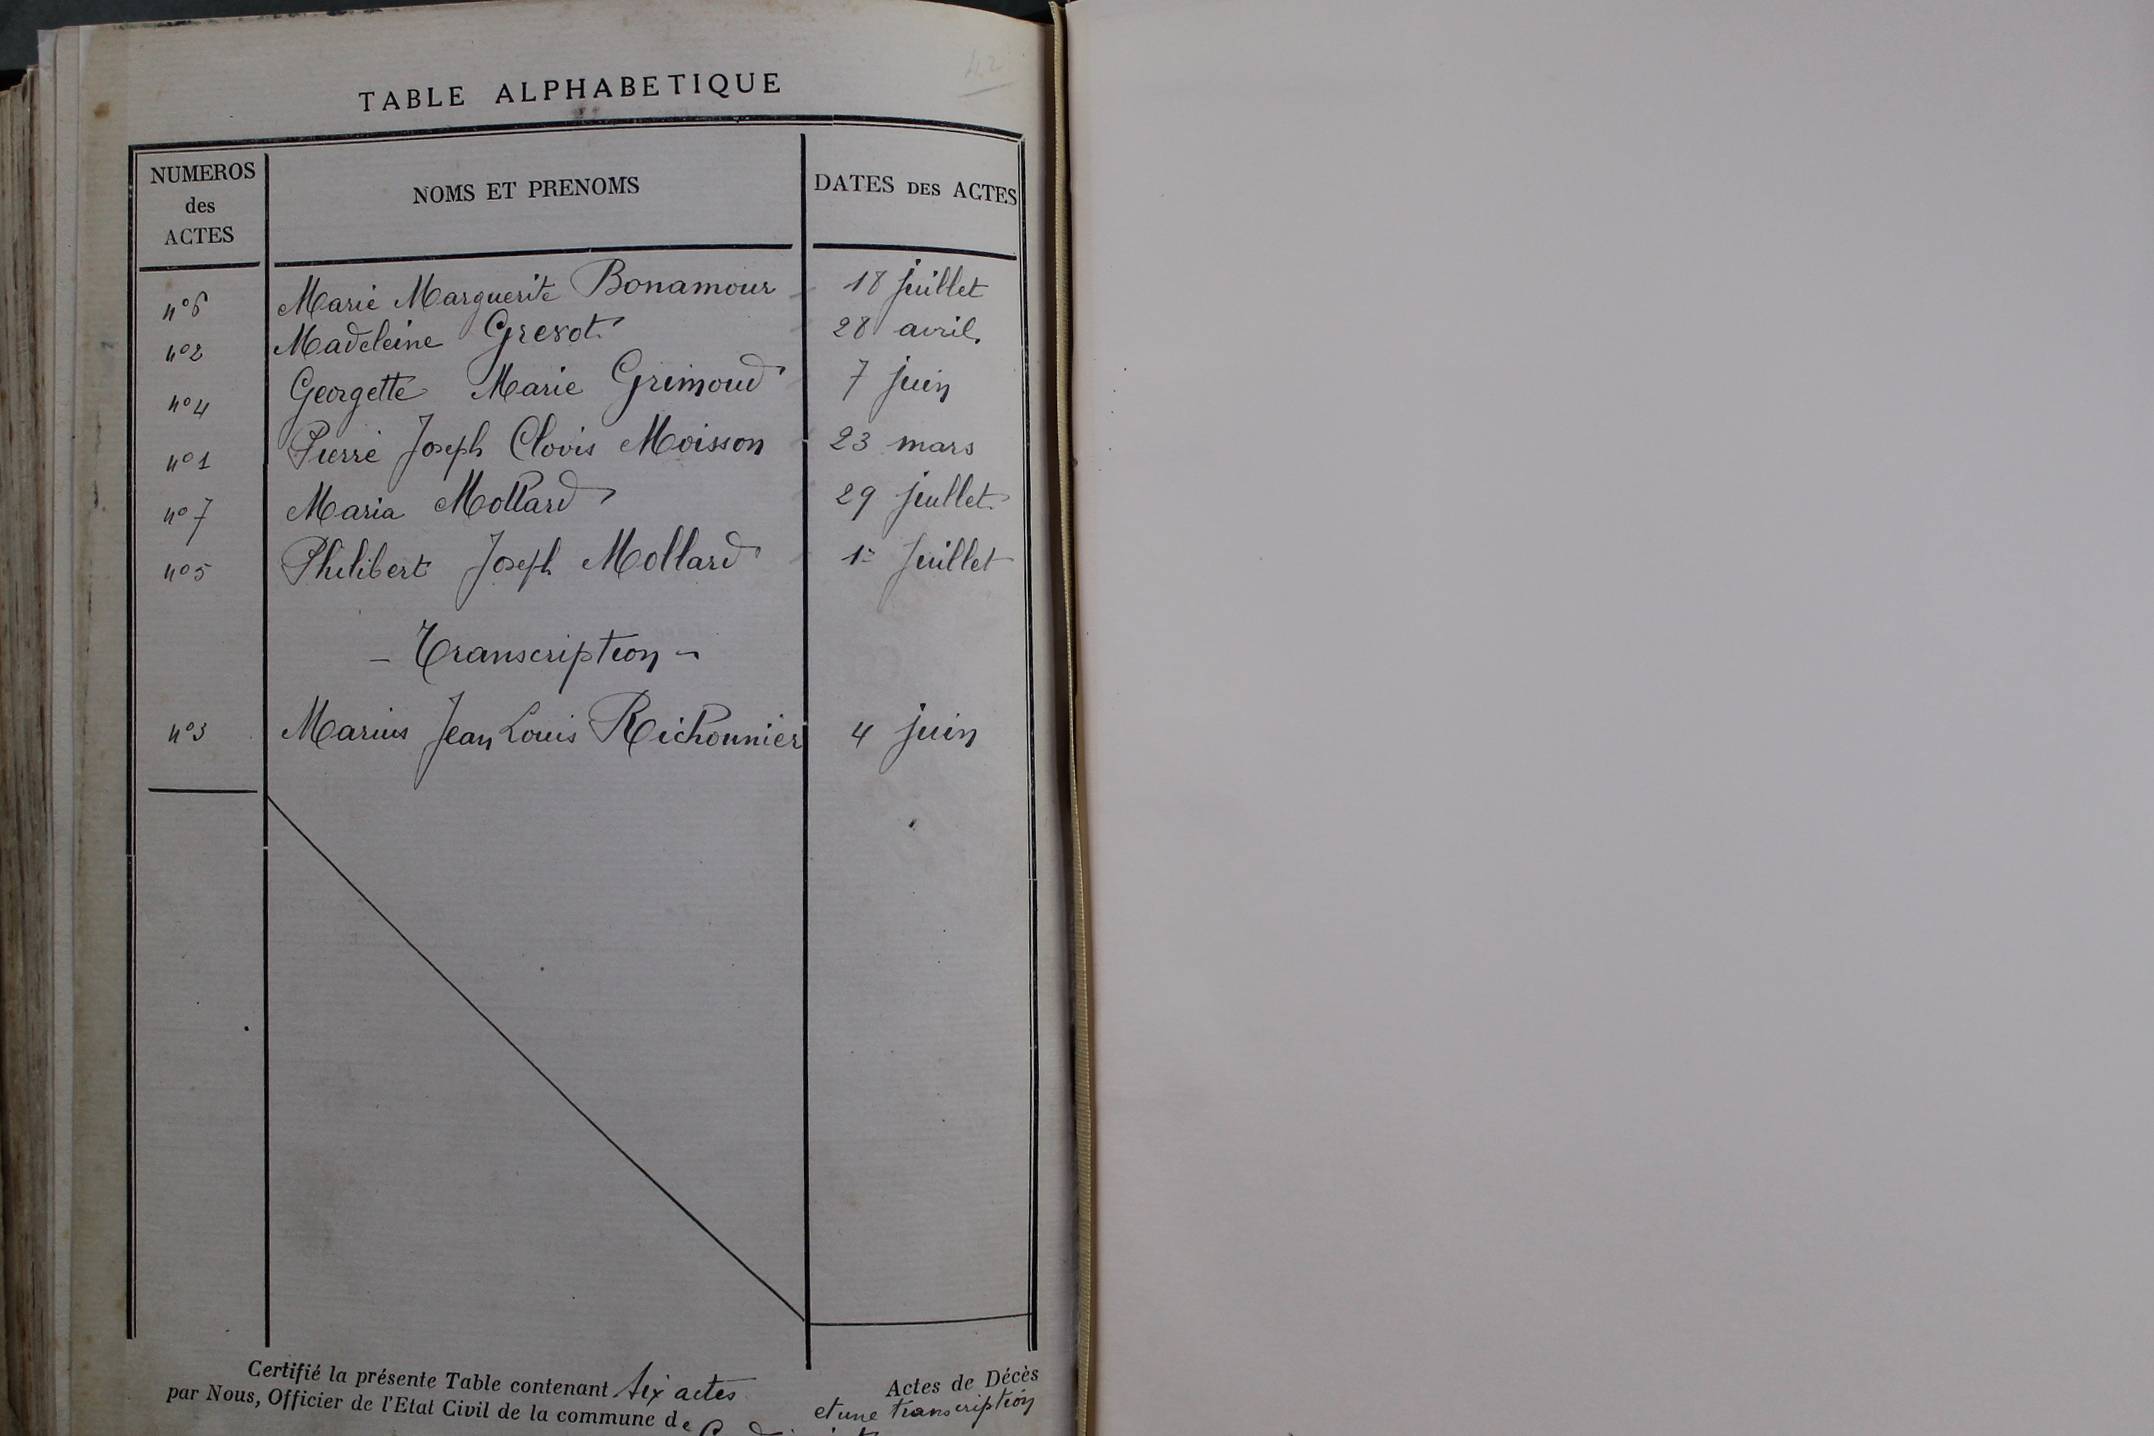 42
TABLE ALPHABETIQUE
NUMEROS des ACTES | NOMS ET PRENOMS | DATES DES ACTES
n°6 Marie Marguerite Bonamour 18 juillet
n°2 Madeleine Grexot 28 avril.
n°4 Georgette Marie Grimoud 7 juin
n°1 Pierre Joseph Clovis Moisson 23 mars
n°7 Maria Mollard 29 juillet
n°5 Philibert Joseph Mollard 1er Juillet
- Transcription -
n°3 Marius Jean Louis Richonnier 4 juin
Certifié la présente Table contenant six actes Actes de Décès
et une transcription
par Nous, Officier de l'Etat Civil de la commune de